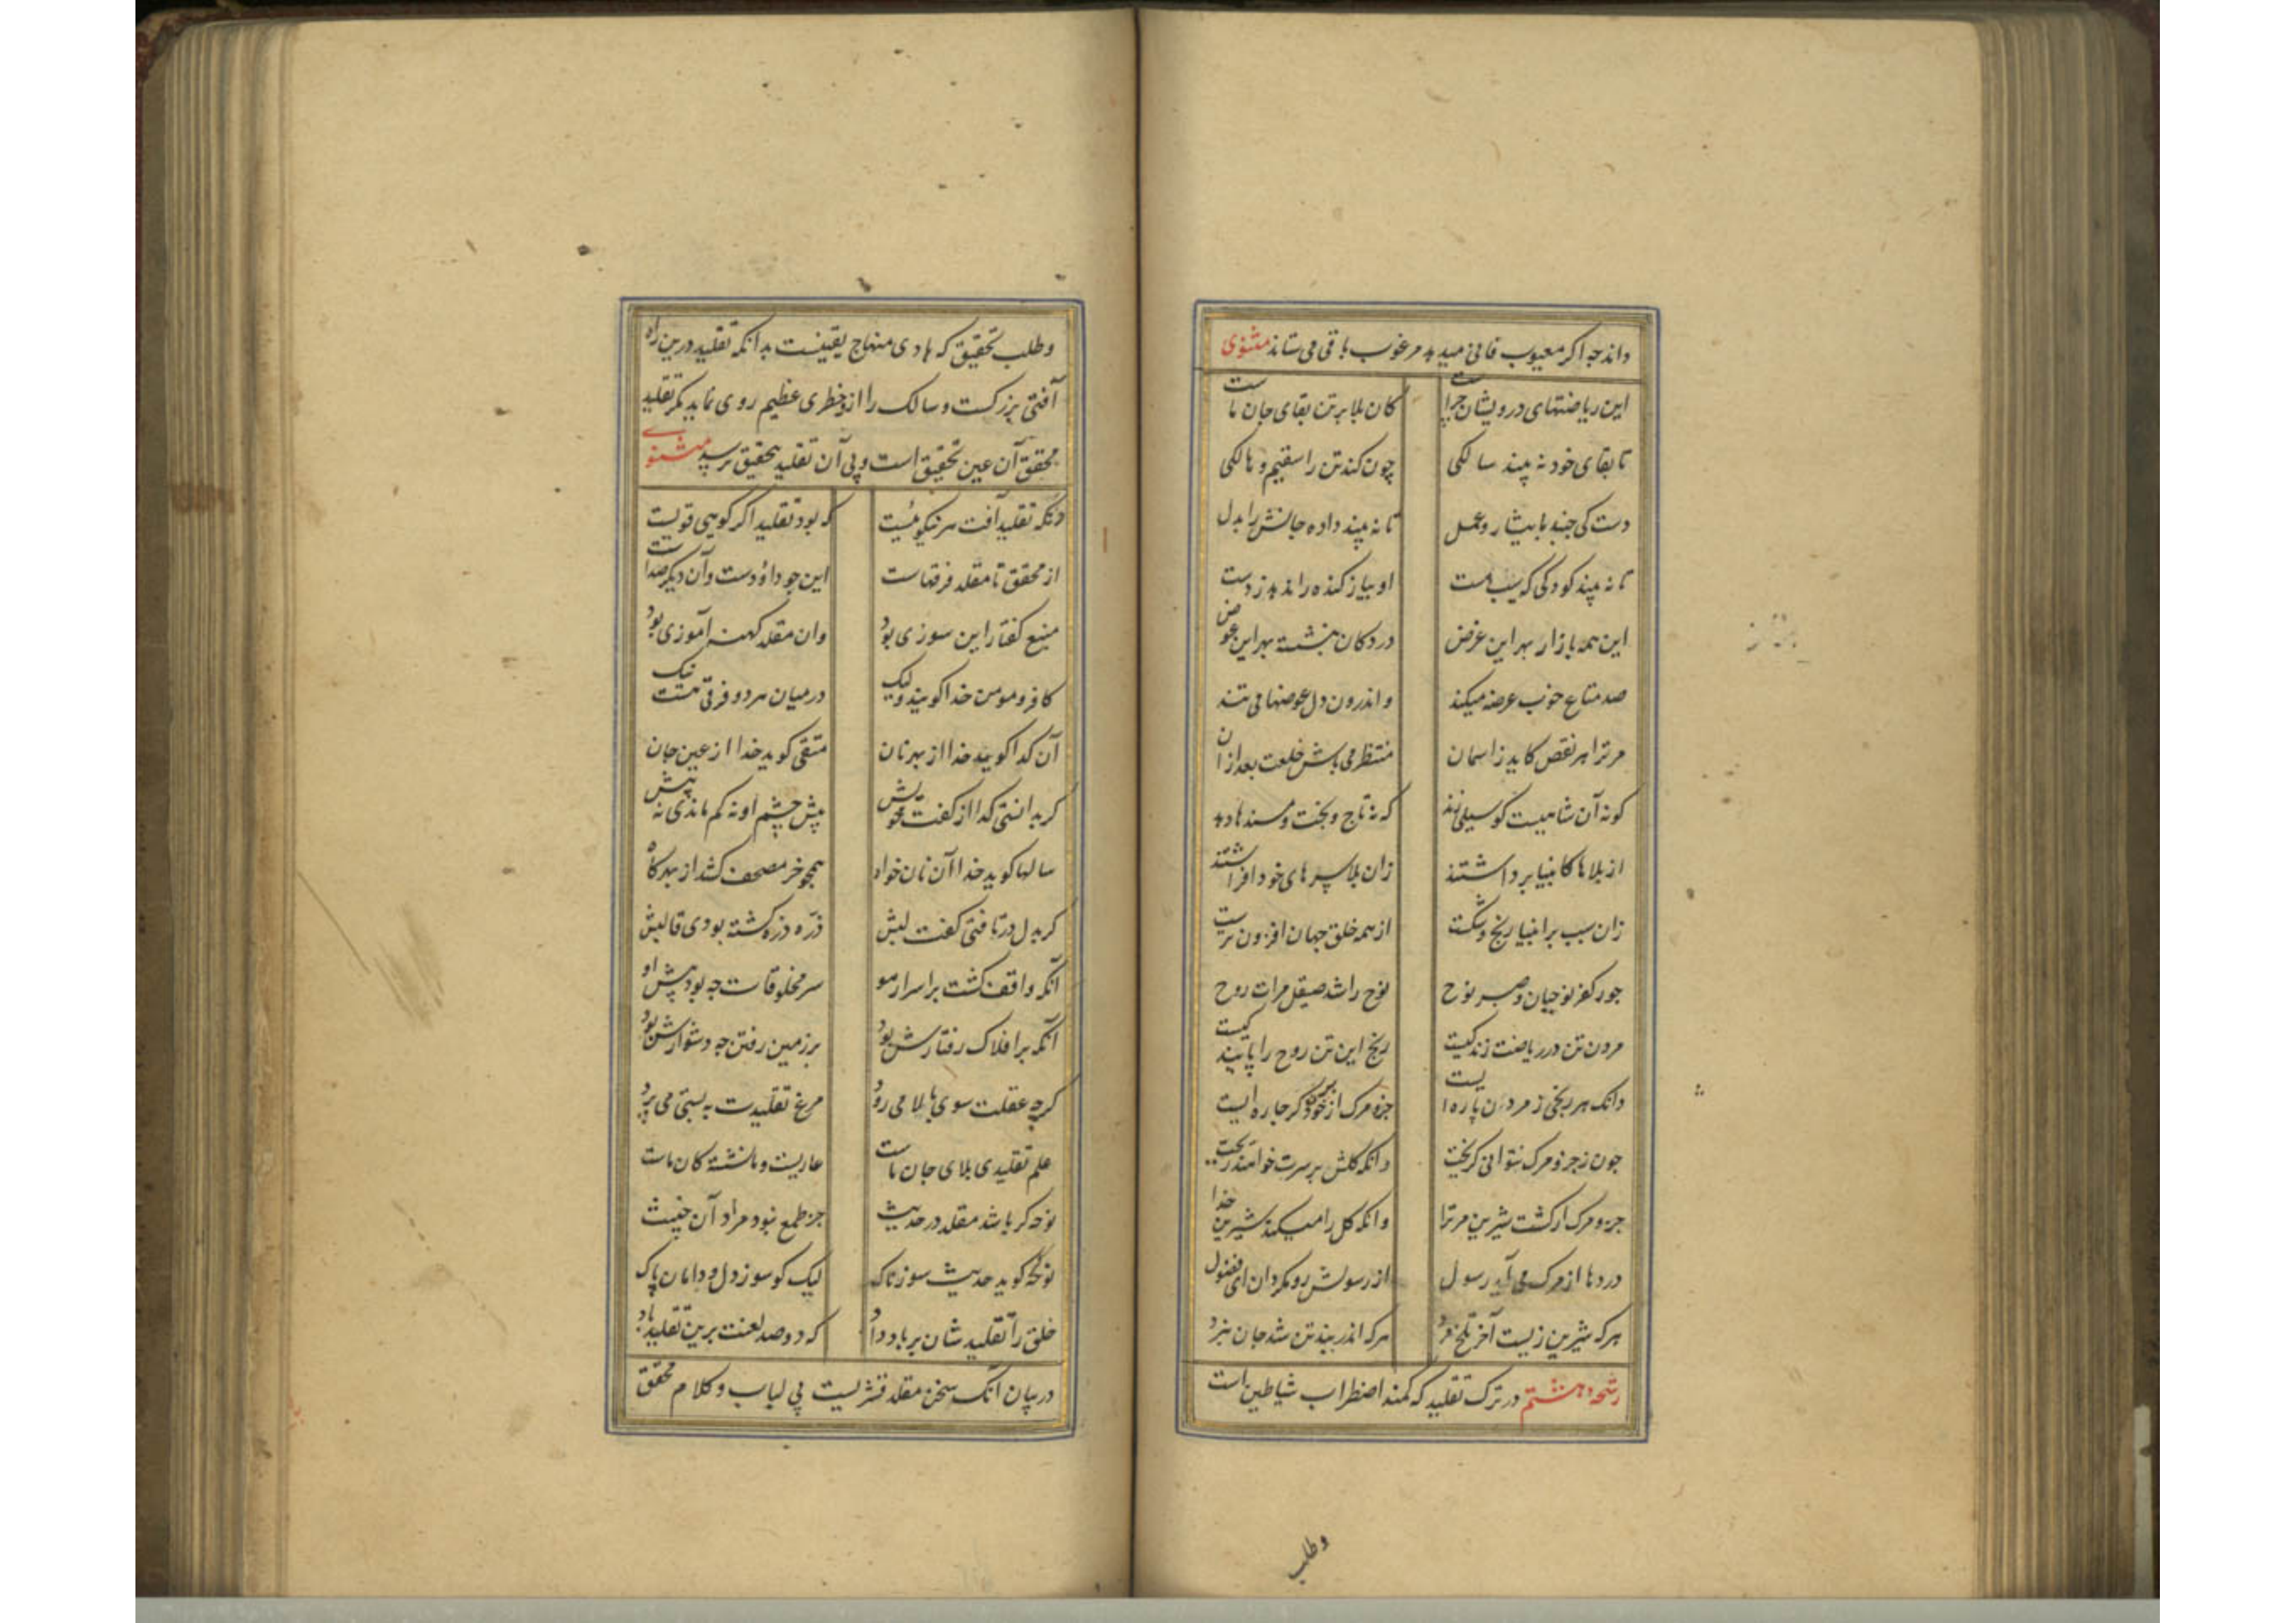 داند چه اکر معیوب فانی میدهد مرغوب باقی می ستاند مثنوی
این ریاضتهای درویشان چراست کان بلا بر تن بقای جان ماست
تا بقای خود نه بیند سالکی چون کند تن را سقیم و هالکی
دست کی جنبد بایثار و عمل تا نه بیند داده جانش را بدل
تا نه بیند کودکی که سیب هست او پیاز کنده را ندهد ز دست
این همه بازار بهر این غرض در دکان بنشسته بهر این عوض
صد متاع خوب عرضه میکند و اندرون دل عوضها می تند
مر ترا هر نقص کاید ز اسمان منتظر می باش خلعت بعد از ان
کو نه آن شاهیست کو سیلی زند که نه تاج و تخت و مسندها دهد
از بلاها کانبیا برداشتند زان بلا سرهای خود افراشتند
زان سبب بر انبیا رنج و شکست از همه خلق جهان افزون ترست
جور کفر نوحیان و صبر نوح نوح را شد صیقل مرات روح
مردن تن در ریاضت زندکیست رنج این تن روح را پایندکیست
دانک هر رنجی ز مردن پاره ایست جزو مرک از خود بران کر چاره ایست
چون ز جزو مرک نتوانی کریخت دانکه کلش بر سرت خواهند ریخت
جزو مرک ار کشت شیرین مر ترا دانکه کل را میکند شیرین خدا
دردها از مرک می آید رسول از رسولش رو مکردان ای فضول
هرکه شیرین زیست آخر تلخ مرد هرکه اندر بند تن شد جان نبرد
رشحه هشتم در ترک تقلید که کمند اضطراب شیاطین است
وطلب
وطلب تحقیق که هادی منهاج یقینست بدانکه تقلید درین راه
آفتی بزرکست و سالک را ازو خطری عظیم روی نماید مکر تقلید
محقق آن عین تحقیق است و پی آن تقلید بتحقیق نرسد مثنوی
زنکه تقلید آفت هر نیکوئیست که بود تقلید اکر کوهی قویست
از محقق تا مقلد فرقهاست این چو داؤدست و آن دیکر صداست
منبع کفتار این سوزی بود وان مقلد کهنه آموزی بود
کافر و مومن خدا کویند ولیک در میان هر دو فرقی هست نیک
آن کدا کوید خدا از بهر نان متقی کوید خدا از عین جان
کر بدانستی کدا از کفت خویش پیش چشم او نه کم ماندی نه بیش
سالها کوید خدا آن نان خواه همچو خر مصحف کشد از بهر کاه
کر بدل در تافتی کفت لبش ذره ذره کشته بودی قالبش
آنکه واقف کشت بر اسرار هو سر مخلوقات چه بود پیش او
آنکه بر افلاک رفتارش بود بر زمین رفتن چه دشوارش بود
کرچه عقلت سوی بالا می رود مرغ تقلیدت به پستی می پرد
علم تقلیدی بلای جان ماست عاریت و ما نشسته کان ماست
نوحه کر باشد مقلد در حدیث جز طمع نبود مراد آن خبیث
نوحه کوید حدیث سوزناک لیک کو سوز دل و دامان پاک
خلق را تقلید شان بر باد داد که دو صد لعنت برین تقلید باد
در بیان آنکه سخن مقلد قشریست بی لباب و کلام محقق